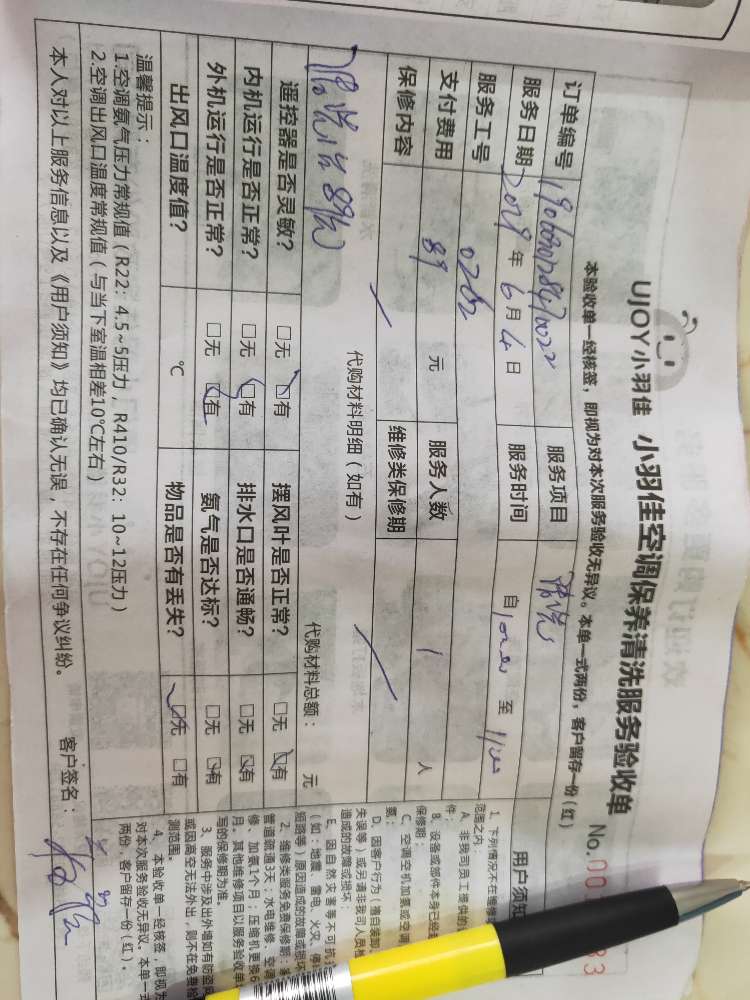 UJOY小羽佳 小羽佳空调保养清洗服务验收单
本验收单一经核签，即视为对本次服务验收无异议。本单一式两份，客户留存一份(红) No.
订单编号 服务项目
服务日期 年 6 月 4 日 服务时间 自 至
服务工号 0202
支付费用 89 元 服务人数 1 人
保修内容 维修类保修期
代购材料明细（如有） 代购材料总额： 元
遥控器是否灵敏？ □无 □有 摆风叶是否正常？ □无 □有
内机运行是否正常？ □无 □有 排水口是否通畅？ □无 □有
外机运行是否正常？ □无 □有 氨气是否达标？ □无 □有
出风口温度值？ ℃ 物品是否有丢失？ □无 □有
温馨提示：
1.空调氨气压力常规值（R22：4.5~5压力，R410/R32：10~12压力）
2.空调出风口温度常规值（与当下室温相差10℃左右）
本人对以上服务信息以及《用户须知》均已确认无误，不存在任何争议纠纷。 客户签名：
用户须知
1、下列情况不在维修
范围之内
A、非我司员工提供的
件；
B、设备或部件本身已经
保修期；
C、空调空机加氨或空调
氨；
D、因客户行为（擅自装卸、
失误等）或另请非我司人员
造成的故障或损坏；
E、因自然灾害等不可抗
（如：地震、雷电、火灾、停
短路等）原因造成的故障或损坏
2、维修类服务免费保修期：
管道疏通3天；水电维修、空调
修、加氨1个月；压缩机更换
月。其他维修项目以服务验收单
写的保修期为准。
3、服务中涉及出外墙如有防盗
或因高空无法外出，则不在免费检
测范围。
4、本验收单一经核签，即视为
对本次服务验收无异议。本单一式
两份，客户留存一份（红）。